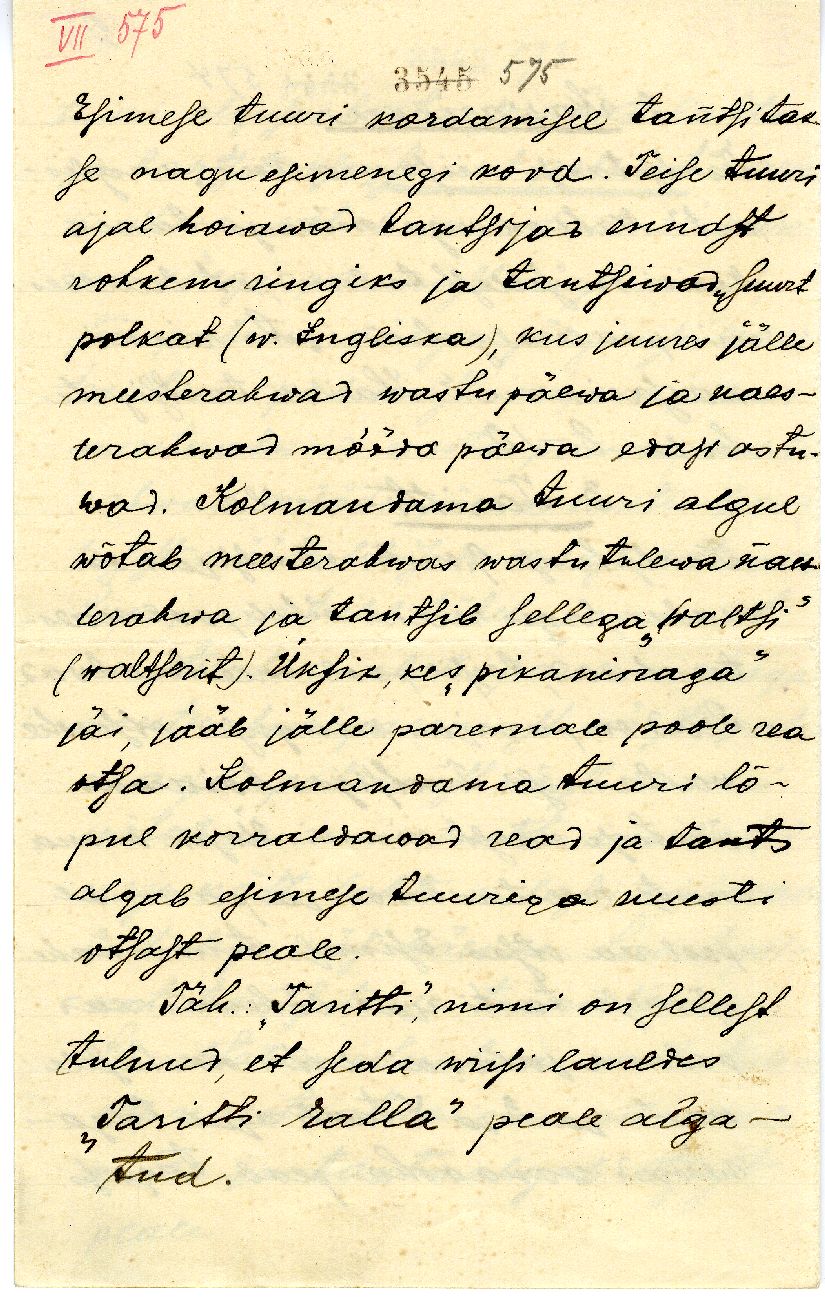 VII 575
3545 575
Esimese tuuri kordamisel tantsitak-
se nagu esimenegi kord. Teise tuuri
ajal hoiawad tantsijad ennast
rohkem ringiks ja tantsiwad „suurt
polkat (w. Ingliska), kus juures jälle
meesterahwad wastu päewa ja naes-
terahwad mööda päewa edasi astu-
wad. Kolmandama tuuri algul
wõtab meesterahwas wastutulewa naes-
terahwa ja tantsib sellega „waltsi”
(waltserit). Üksik, kes „pikaninaga”
jäi, jääb jälle paremale poole rea
otsa. Kolmandama tuuri lõ-
pul korraldawad read ja tants
algab esimese tuuriga uuesti
otsast peale.
Täh.: „Taritti”, nimi on sellest
tulnud, et seda wiisi lauldes
„Taritti ralla” peale alga-
tud.